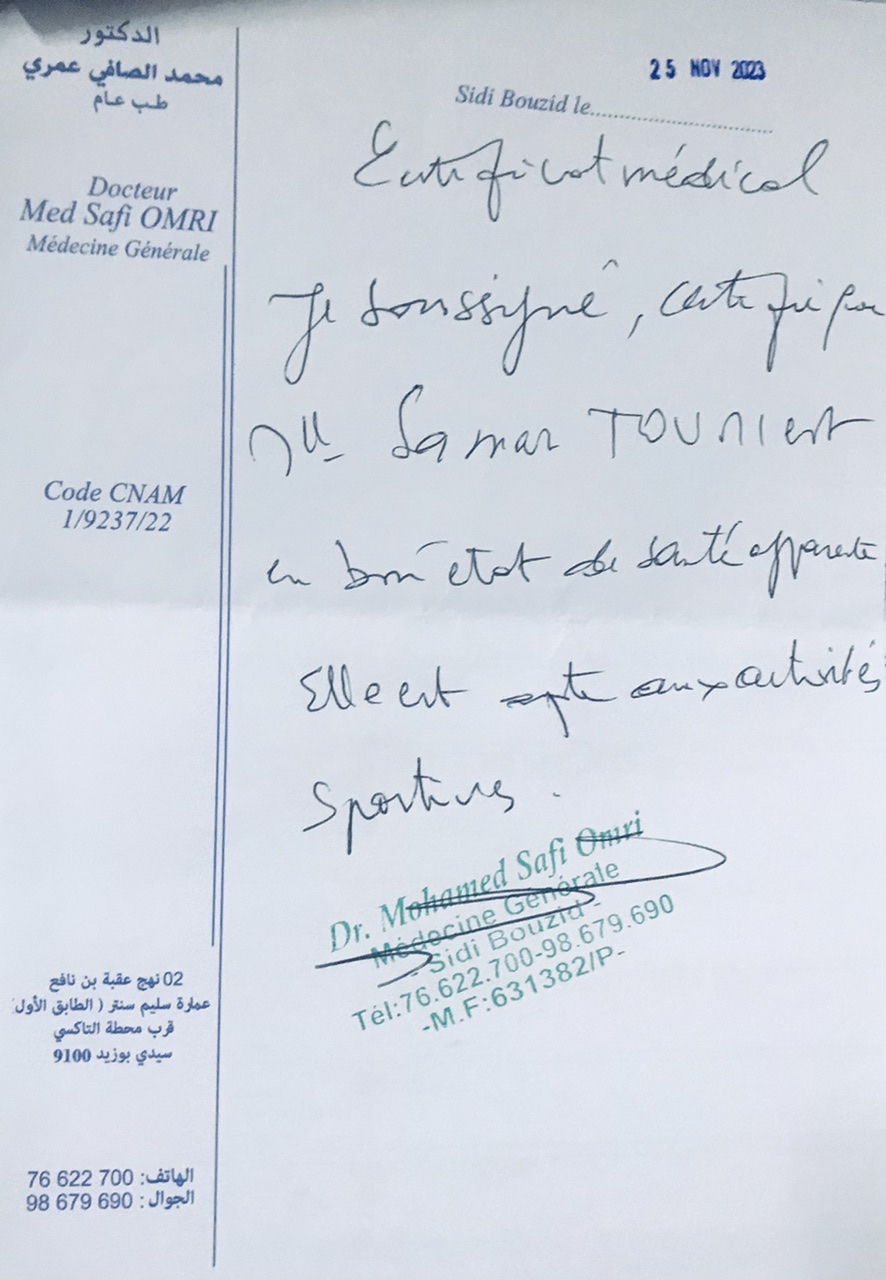 الدكتور
محمد الصافي عمري
طب عام
Docteur
Med Safi OMRI
Médecine Générale
Code CNAM
1/9237/22
02 نهج عقبة بن نافع
عمارة سليم سنتر ( الطابق الأول
قرب محطة التاكسي
سيدي بوزيد 9100
الهاتف: 700 622 76
الجوال : 690 679 98
25 NOV 2023
Sidi Bouzid le
Certificat médical
Je soussigné, certifie que
Mlle Samar TOUNSI est
en bon état de santé apparente
Elle est apte aux activités
Sportives .
Dr. Mohamed Safi Omri
Médecine Générale
- Sidi Bouzid -
Tél:76.622.700-98.679.690
-M.F:631382/P-